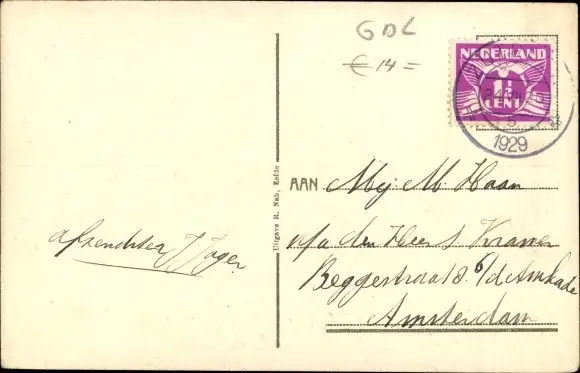 GDL
€ 14 =
NEDERLAND
1½
CENT
5
1929
Uitgave R. Nab, Eelde
AAN Mej M. Haan
p/a den Heer S Kramer
Beggestraat 8 6/d Amkade
Amsterdam
afzendster J Jager